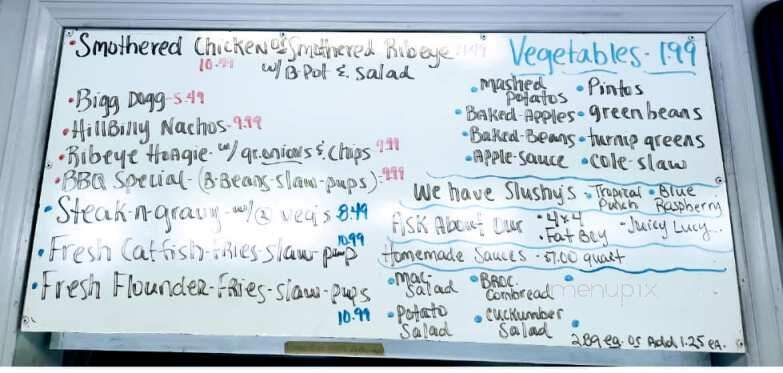 • Smothered Chicken or Smothered Ribeye
10.99
w/ B-Pot & Salad
• Bigg Dogg - 5.49
• HillBilly Nachos - 9.99
• Ribeye Hoagie - w/ gr. onions & Chips 9.99
• BBQ Special - (B-Beans - slaw - pups) - 9.99
• Steak-n-gravy - w/ 2 veg's 8.49
• Fresh Catfish - fries - slaw - pup 10.99
• Fresh Flounder - fries - slaw - pups
10.99
Vegetables - 1.99
• mashed Potatos
• Pintos
• Baked-Apples
• green beans
• Baked-Beans
• turnip greens
• Apple-sauce
• Cole-slaw
We have Slushy's
• Tropical Punch
• Blue Raspberry
Ask About our
• 4x4
• Fat Boy
- Juicy Lucy...
Homemade Sauces - $7.00 quart
• Mac-Salad
• Broc. Cornbread
• Potato Salad
• Cuckumber Salad
2.89 ea. or Add 1.25 ea.
menupix